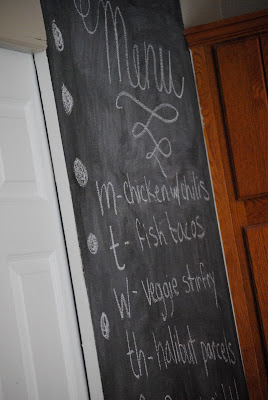 Menu
m-chicken w/chilis
t- fish tacos
w- veggie stirfry
th-hallout parcels